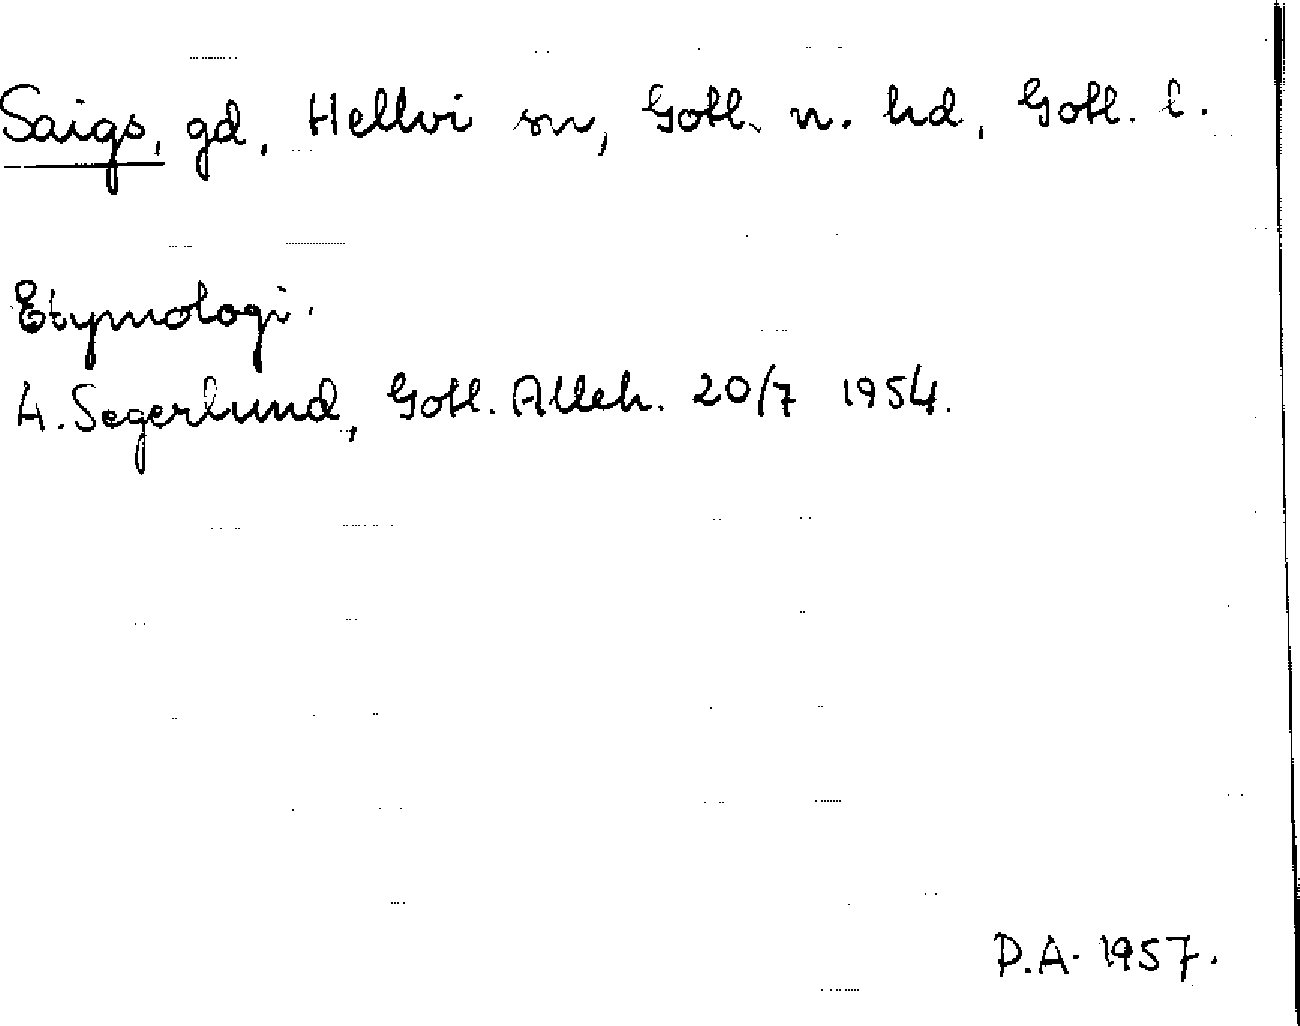 Saigs, gd, Hellvi sn, Gotl. n. hd, Gotl. l.
Etymologi.
H. Segerlund, Gotl. Alleh. 20/7 1954.
D.A. 1957.